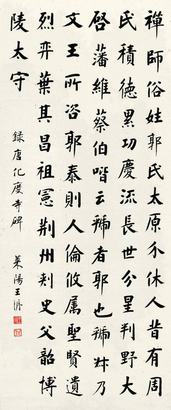 禪師俗姓郭氏太原介休人昔有周
氏積德累功慶流長世分星判野大
啓藩維蔡伯喈云虢者郭也虢叔乃
文王所咨郭泰則人倫攸屬聖賢遺
烈弈葉其昌祖憲荆州刺史父韶博
陵太守
録唐化度寺碑
萊陽王垿